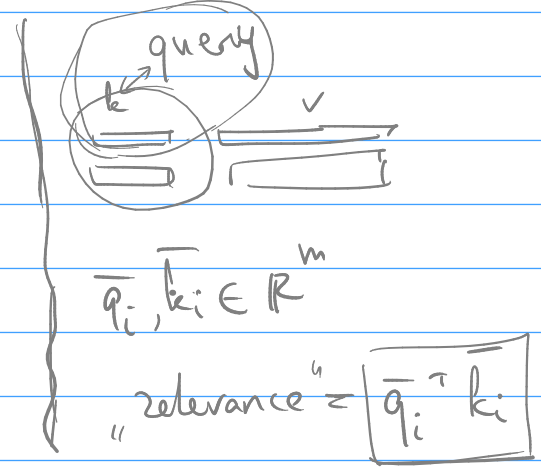 query
k v
q̄ᵢ, k̄ᵢ ∈ ℝᵐ
„relevance“ = q̄ᵢᵀ k̄ᵢ